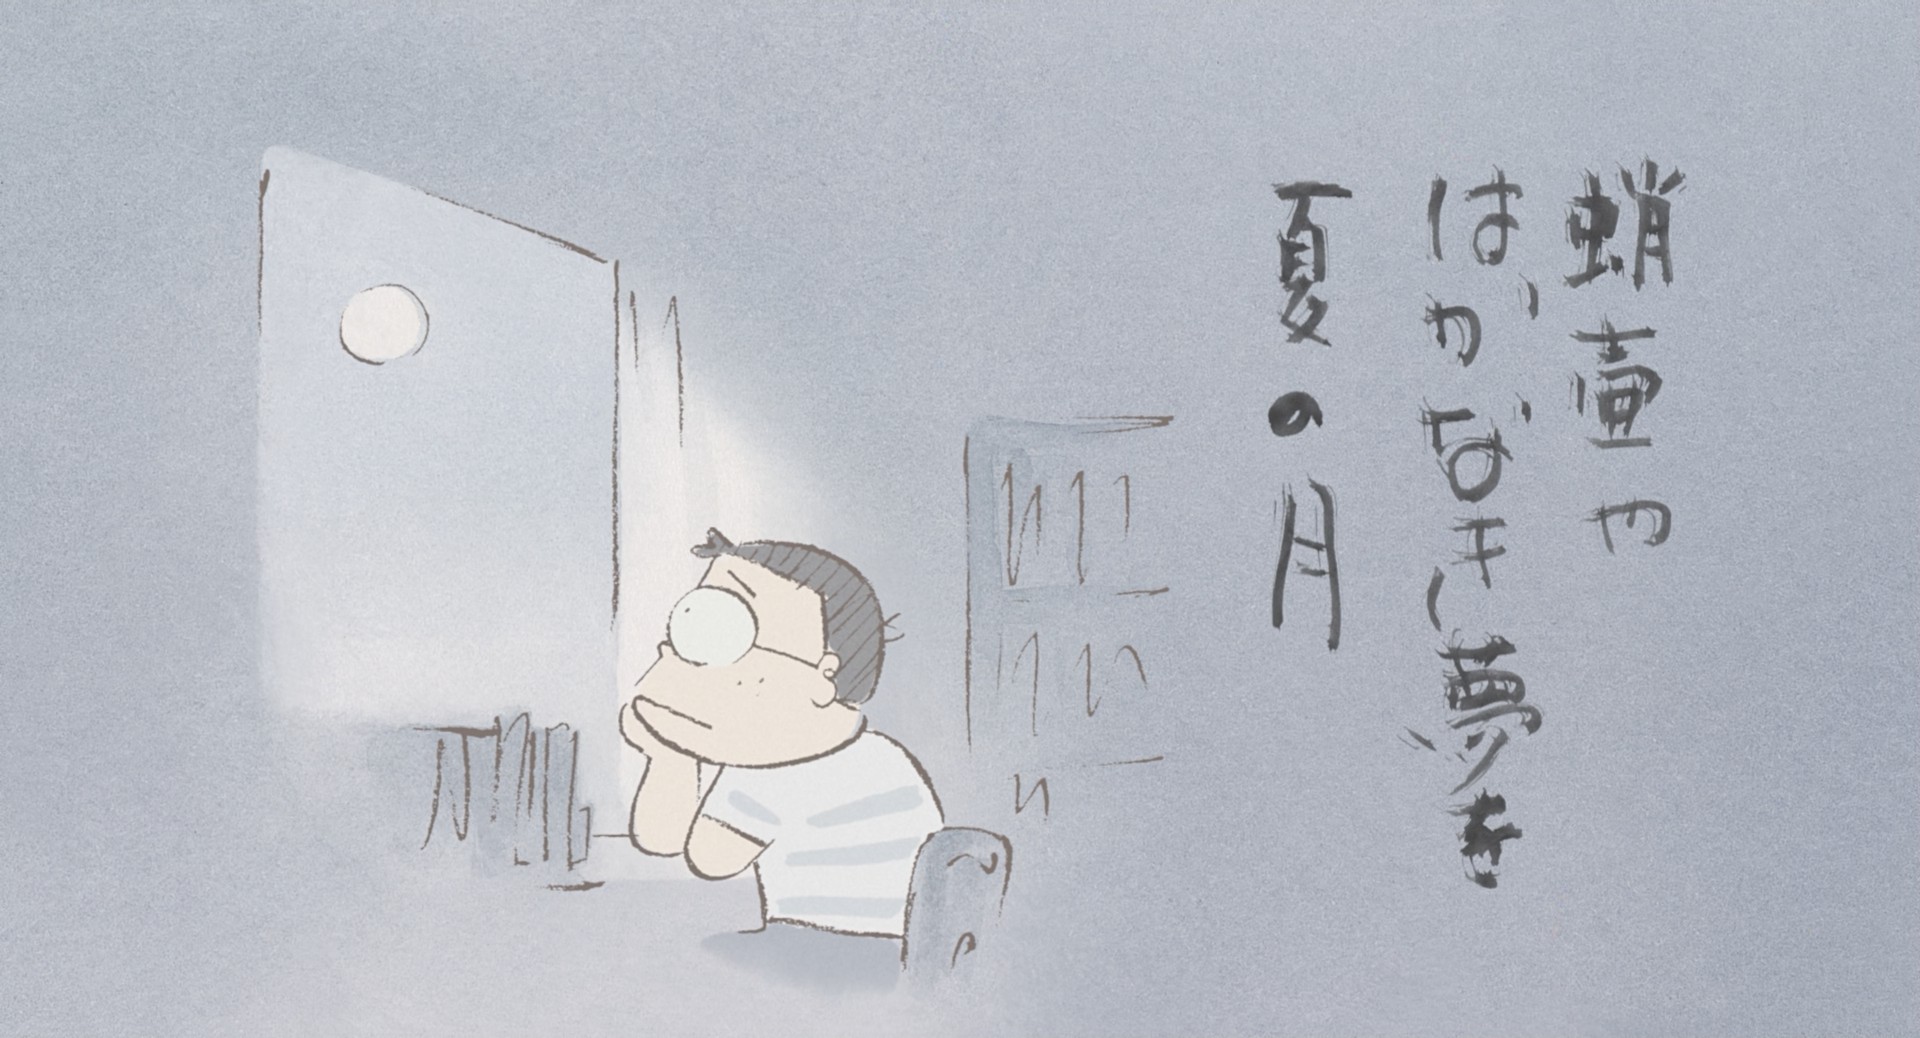 蛸壷や
はかなき夢を
夏の月